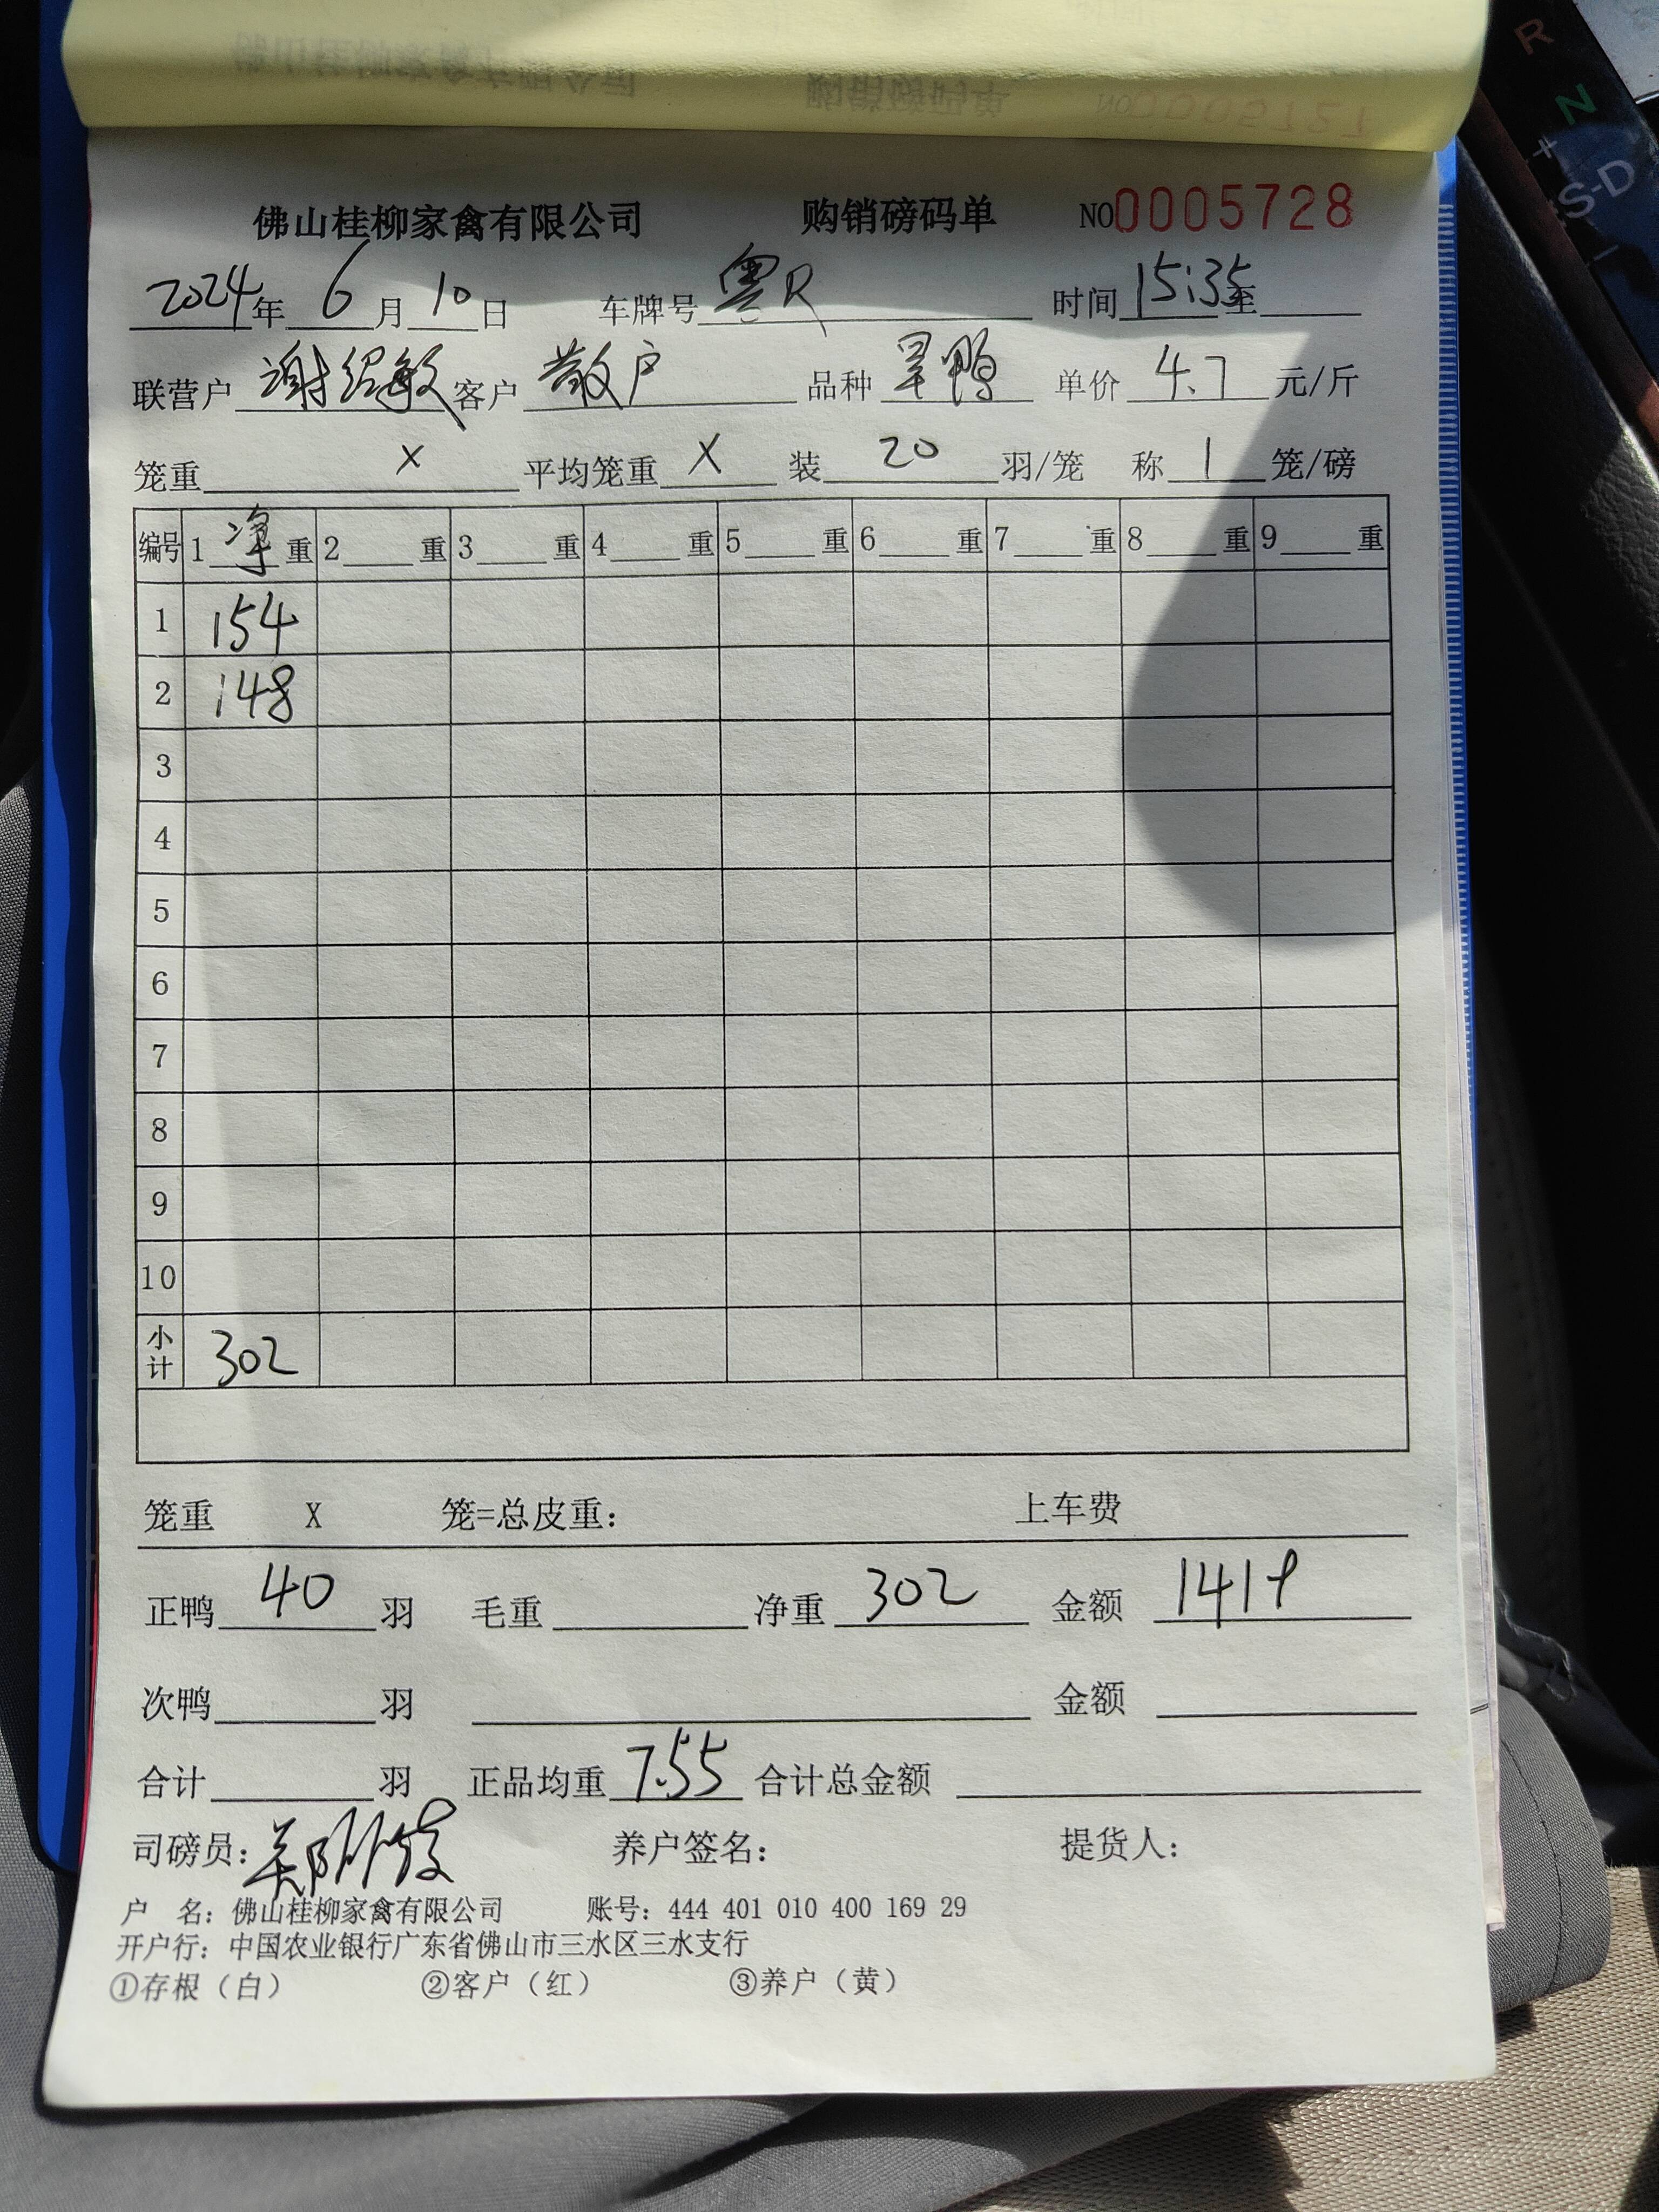 佛山桂柳家禽有限公司 购销磅码单 NO0005728
2024年 6月 10日 车牌号 粤R 时间 15:35至
联营户 谢绍敏 客户 散户 品种 旱鸭 单价 4.7 元/斤
笼重 X 平均笼重 X 装 20 羽/笼 称 1 笼/磅
编号 1 净 重 2 重 3 重 4 重 5 重 6 重 7 重 8 重 9 重
1 154
2 148
3
4
5
6
7
8
9
10
小计 302
笼重 X 笼=总皮重: 上车费
正鸭 40 羽 毛重 净重 302 金额 1419
次鸭 羽 金额
合计 羽 正品均重 7.55 合计总金额
司磅员: 养户签名: 提货人:
户 名: 佛山桂柳家禽有限公司 账号: 444 401 010 400 169 29
开户行: 中国农业银行广东省佛山市三水区三水支行
①存根（白） ②客户（红） ③养户（黄）
R
N
+
S-D
-